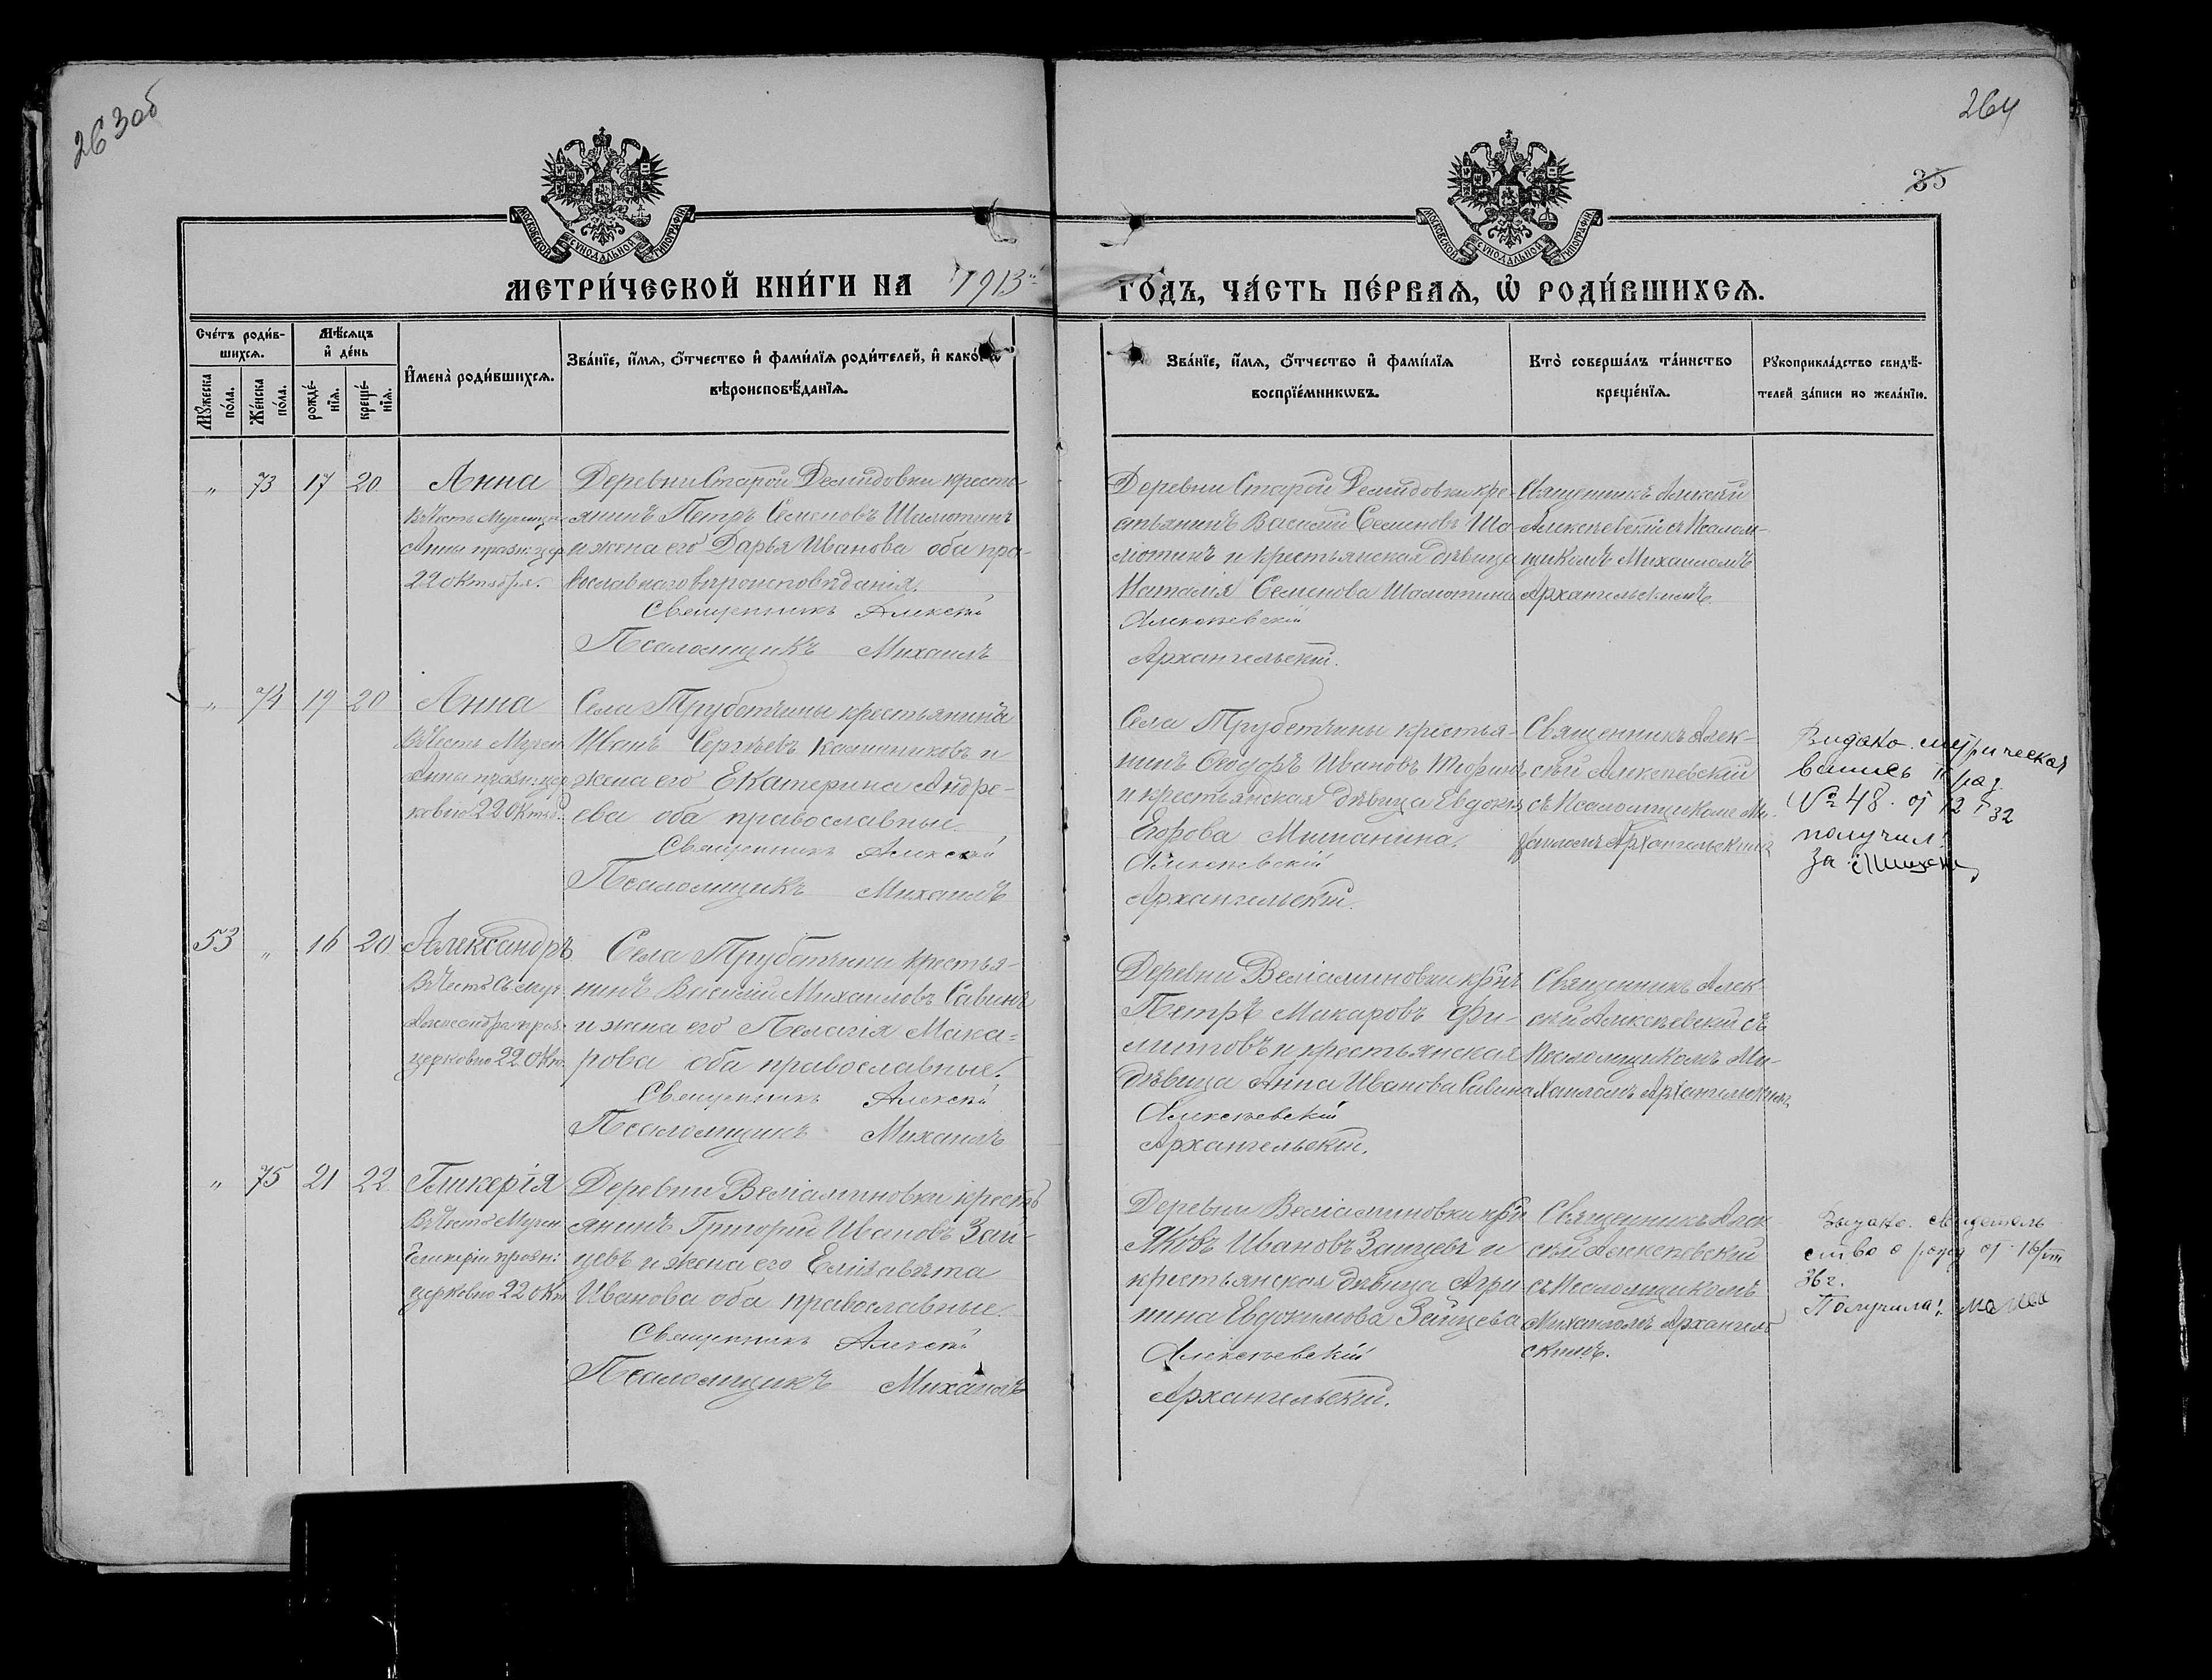 263об
264
35
МОСКОВСКОЙ СУНОДАЛЬНОЙ ТИПОГРАФІИ
МОСКОВСКОЙ СУНОДАЛЬНОЙ ТИПОГРАФІИ
МЕТРИ́ЧЕСКОЙ КНИ́ГИ НА 1913й
ГО́ДЪ, ЧА́СТЬ ПЕ́РВАѦ, Ѡ РОДИ́ВШИХСѦ.
Сче́тъ роди́в-
шихсѧ.
Мѣ́сѧцъ
и҆ де́нь
Мꙋ́жеска по́ла.
Же́нска по́ла.
рожде́-
нїѧ.
креще́-
нїѧ.
И҆мена̀ роди́вшихсѧ.
Зва́нїе, и҆́мѧ, ѻ҆́тчество и҆ фами́лїѧ роди́телей, и҆ како́гѡ
вѣроисповѣ́данїѧ.
Зва́нїе, и҆́мѧ, ѻ҆́тчество и҆ фами́лїѧ
воспрїе́мникѡвъ.
Кто̀ соверша́лъ та́инство
креще́нїѧ.
Рꙋкоприкла́дство свидѣ́-
телей за́писи по жела́нїю.
„ 73 17 20
Анна
Въ честь Мучениц
Анны празн: цер
22 октября.
Деревни Старой Демидовки кресть-
янинъ Петръ Семеновъ Шалютинъ
и жена его Дарья Иванова оба пра-
вославнаго вѣроисповѣданія.
Священникъ Алексѣй
Псаломщикъ Михаилъ
Деревни Старой Демидовки кре-
стьянинъ Василій Семеновъ Ша-
лютинъ и крестьянская дѣвица
Наталія Семенова Шалютина
Алексѣевскій
Архангельскій.
Священникъ Алексѣй
Алексѣевскій съ Псалом-
щикомъ Михаиломъ
Архангельскимъ.
„ 74 19 20
Анна
Въ честь Мучен
Анны празн: цер
ковію 22 Октяб.
Села Трубетчины крестьянинъ
Иванъ Сергѣевъ Калинниковъ и
жена его Екатерина Андре-
ева оба православные.
Священникъ Алексѣй
Псаломщикъ Михаилъ
Села Трубетчины крестья-
нинъ Ѳеодоръ Ивановъ
и крестьянская дѣвица Евдокія
Егорова Мишанина.
Алексѣевскій
Архангельскій.
Священникъ Алек-
сѣй Алексѣевскій
съ Псаломщикомъ Ми-
хаиломъ Архангельскимъ
Видано метрическая
№ 48 от 12 32
получил
за
53 „ 16 20
Александръ
Въ честь Св муч
Александра праз.
церковію 22 Окт.
Села Трубетчины крестья-
нинъ Василій Михаиловъ Савинъ
и жена его Пелагія Мака-
рова оба православные.
Священникъ Алексѣй
Псаломщикъ Михаилъ
Деревни Веліаминовки кр-нъ
Петръ Макаровъ Фи-
липовъ и крестьянская
дѣвица Анна Иванова Савина
Алексѣевскій
Архангельскій.
Священникъ Алек-
сѣй Алексѣевскій съ
Псаломщикомъ Ми-
хаиломъ Архангельскимъ
„ 75 21 22
Гликерія
Въ честь Мучен
Гликеріи празн:
церковію 22 Окт
Деревни Веліаминовки кресть
янинъ Григорій Ивановъ Зай-
цевъ и жена его Елизавета
Иванова оба православные.
Священникъ Алексѣй
Псаломщикъ Михаилъ
Деревни Веліаминовки кр-нъ
Яковъ Ивановъ Зайцевъ и
крестьянская дѣвица Агри-
пина Евдокимова Зайцева
Алексѣевскій
Архангельскій.
Священникъ Алек
сѣй Алексѣевскій
съ Псаломщикомъ
Михаиломъ Архангель
скимъ.
Выдано свидетель
ство о рожд от 16/
36 г.
Получила: